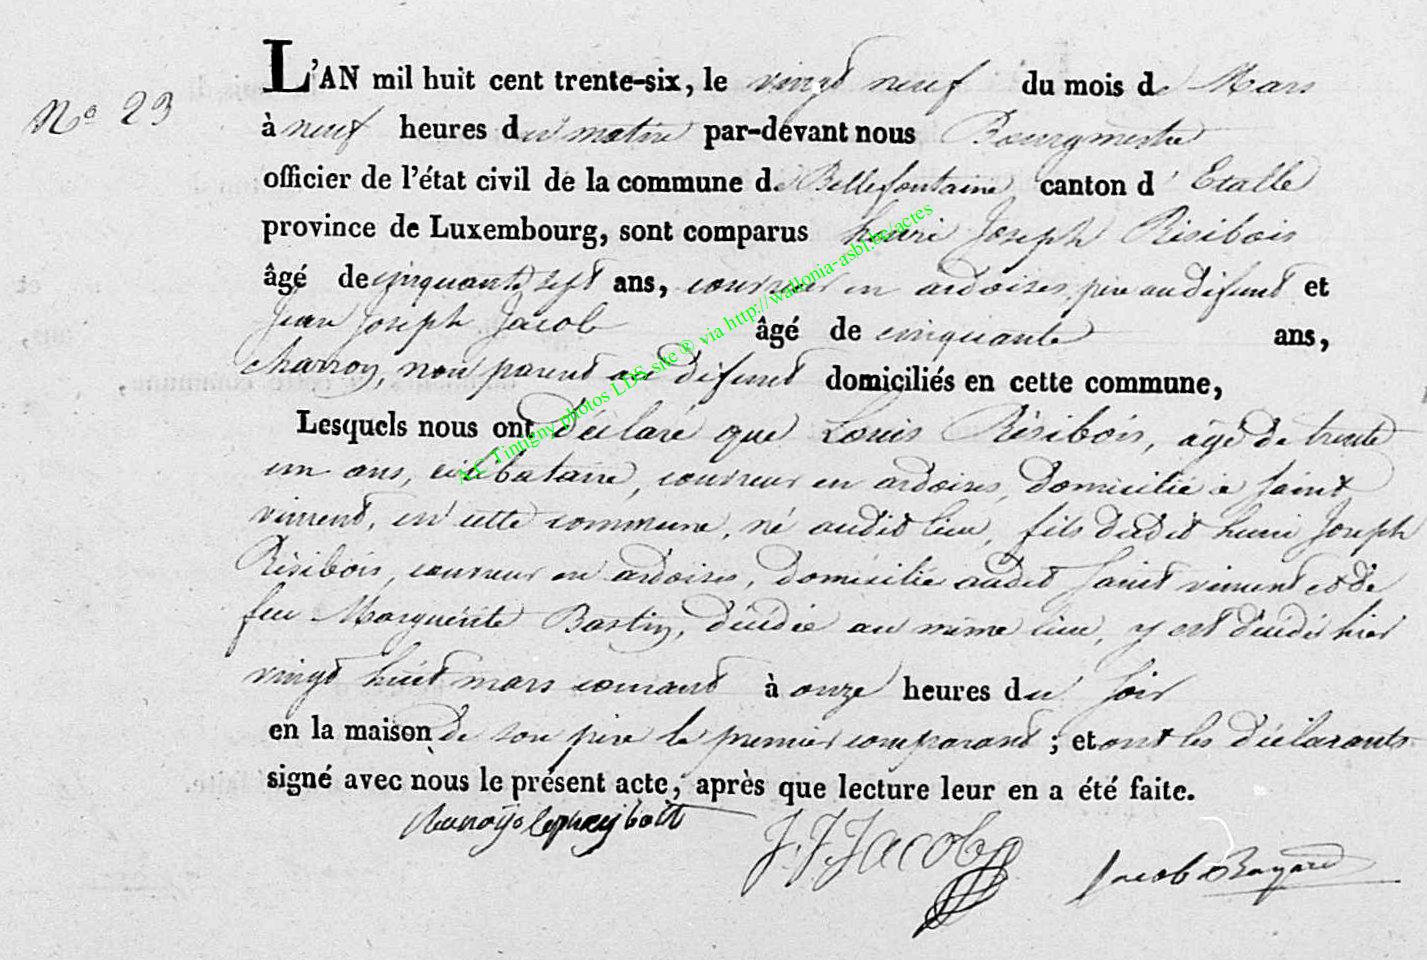 N° 23
L'AN mil huit cent trente-six, le vingt neuf du mois de Mars
à neuf heures du matin par-devant nous Bourgmestre
officier de l'état civil de la commune de Bellefontaine canton d' Etalle
province de Luxembourg, sont comparus henri Joseph Résibois
âgé de cinquante sept ans, couvreur en ardoises, père au défunt et
Jean Joseph Jacob âgé de cinquante ans,
charron, non parent au défunt domiciliés en cette commune,
Lesquels nous ont déclaré que Louis Résibois, âgé de trente
un ans, célibataire, couvreur en ardoises, domicilié a Saint
vincent, en cette commune, né audit lieu, fils dudit henri Joseph
Résibois, couvreur en ardoises, domicilié audit Saint vincent et de
feu Marguerite Bastin, décédée au même lieu, y est décédé hier
vingt huit mars courant à onze heures du soir
en la maison de son père le premier comparant ; et ont les déclarants
signé avec nous le présent acte, après que lecture leur en a été faite.
J. J. Jacob
Jacob Bayard
A.C Tintigny photos LDS site ® via http://wallonia-asbl.be/actes